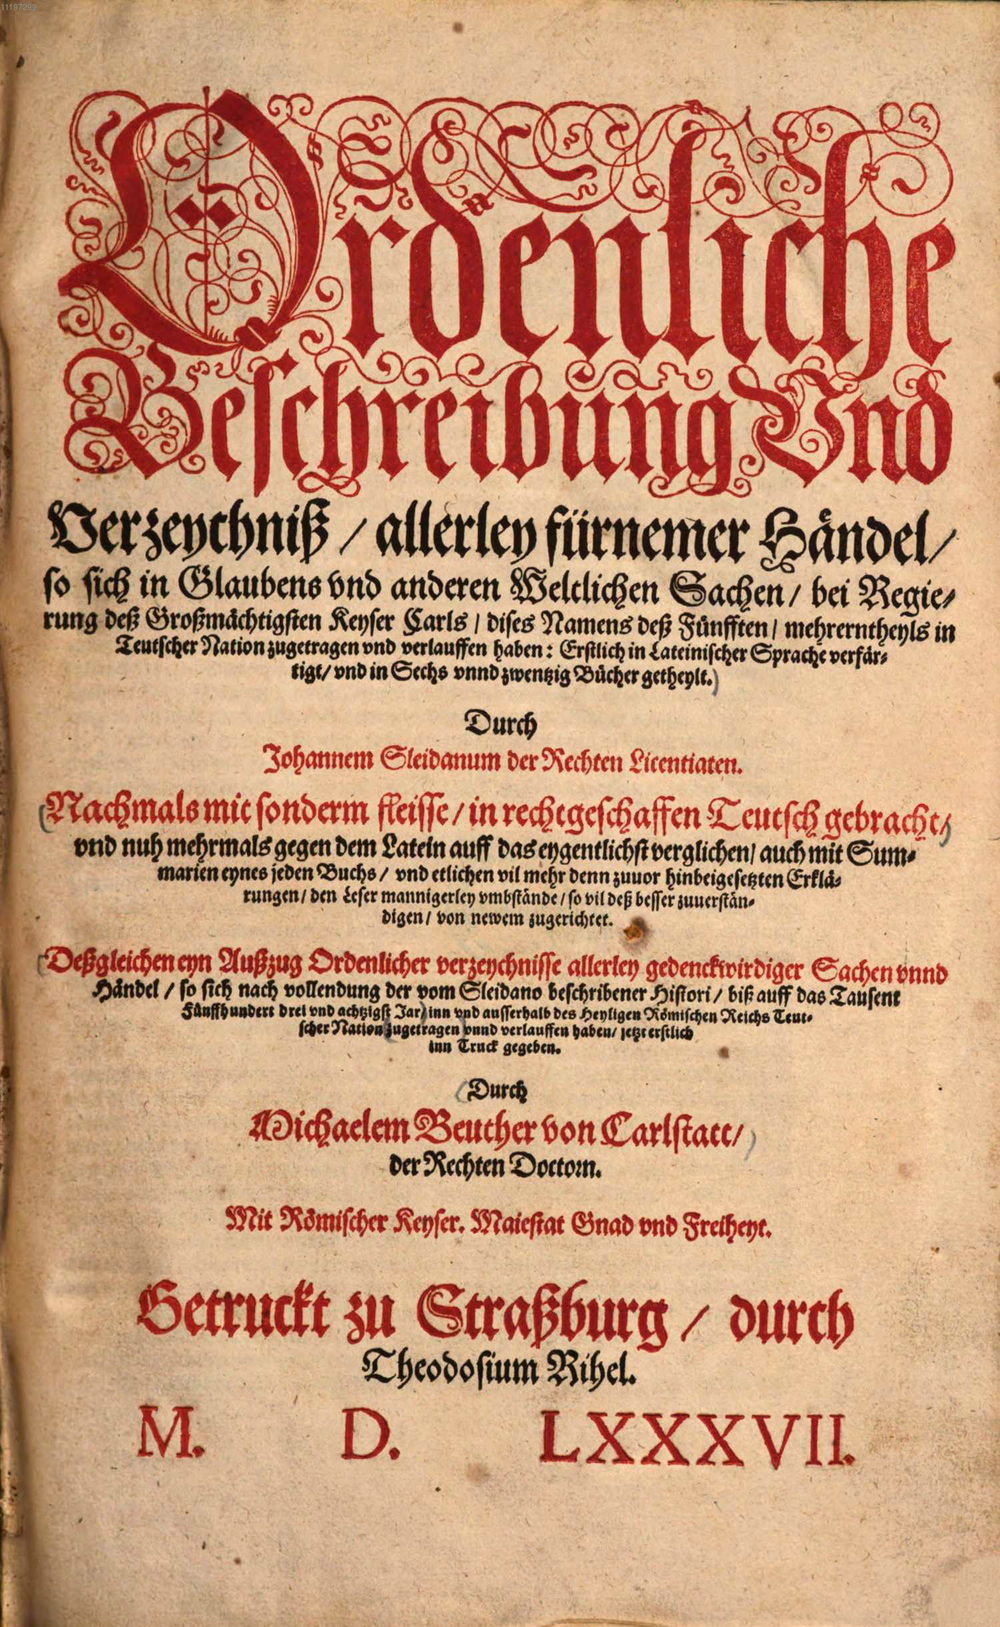 Ordenliche
Beschreibung Vnd
Verzeychniß / allerley fürnemer Händel /
so sich in Glaubens vnd anderen Weltlichen Sachen / bei Regie-
rung deß Großmächtigsten Keyser Carls / dises Namens deß Fünfften / mehrerntheyls in
Teutscher Nation zugetragen vnd verlauffen haben: Erstlich in Lateinischer Sprache verfär-
tigt / vnd in Sechs vnnd zwentzig Bücher getheylt.
Durch
Johannem Sleidanum der Rechten Licentiaten.
Nachmals mit sonderm fleisse / in rechtgeschaffen Teutsch gebracht /
vnd nuh mehrmals gegen dem Latein auff das eygentlichst verglichen / auch mit Sum-
marien eynes jeden Buchs / vnd etlichen vil mehr denn zuuor hinbeigesetzten Erklä-
rungen / den Leser mannigerley vmbstände / so vil deß besser zuuerstän-
digen / von newem zugerichtet.
Deßgleichen eyn Außzug Ordenlicher verzeychnisse allerley gedenckwirdiger Sachen vnnd
Händel / so sich nach vollendung der vom Sleidano beschribener Histori / biß auff das Tausent
Fünffhundert drei vnd achtzigst Jar / inn vnd ausserhalb des Heyligen Römischen Reichs Teut-
scher Nation zugetragen vnnd verlauffen haben / jetzt erstlich
inn Truck gegeben.
Durch
Michaelem Beuther von Carlstatt /
der Rechten Doctorn.
Mit Römischer Keyser. Maiestat Gnad vnd Freiheyt.
Getruckt zu Straßburg / durch
Theodosium Rihel.
M. D. LXXXVII.